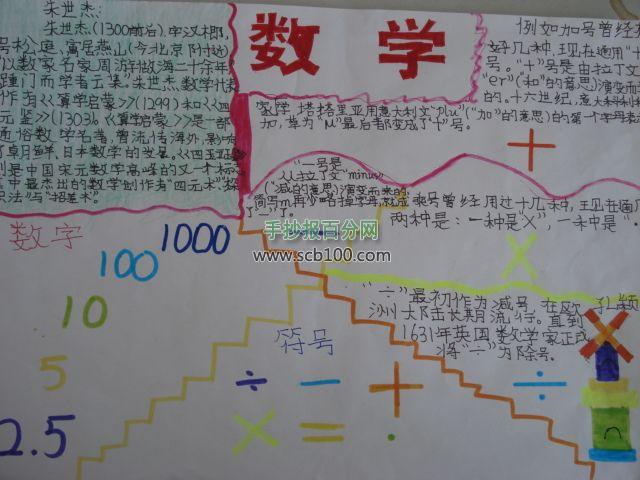 朱世杰:
朱世杰,(1300前后),字汉卿,
号松庭,寓居燕山(今北京附近)
以数家名家周游
二十余年,
踵门而学者云集。朱世杰数学代表
作有《算学启蒙》(1299)和《四
元
》(1303)。《算学启蒙》是一部
通俗数学名著,曾流传海外,影响
了朝鲜、日本数学的发展。《四元玉
则是中国宋元数学高峰的又一个标
中最杰出的数学创作有“四元术”
积法”与“招差术”
数学
例如加号曾经
好几种,现在通用“十
号。“十”号是由拉丁文
“er”(“和”的意思)演变而
的。十六世纪,意大利科
家
塔塔里亚用意大利文“plu”(“加”的意思)的第一个字母表
加,草为“μ”最后都变成了“十”号。
+
“一”号是
从拉丁文“minus”
(“减”的意思)演变而来的,
简写m,再
字母,就成
了“一”了。
乘号曾经用过十几种,现在通
两种是:一种是“×”,一种是“·
×
数字
1000
100
10
5
2.5
手抄报百分网
www.scb100.com
“÷”最初作为减号,在欧
洲大陆长期流行。直到
1631年英国数学家
正式
将“÷”为除号。
符号
÷ − +
÷
× = ·